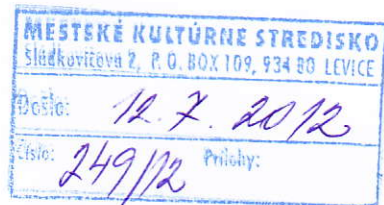 MESTSKÉ KULTÚRNE STREDISKO
Sládkovičova 2, P. O. BOX 109, 934 80 LEVICE
Došlo: 12. 7. 2012
Číslo: 249/12 Prílohy: